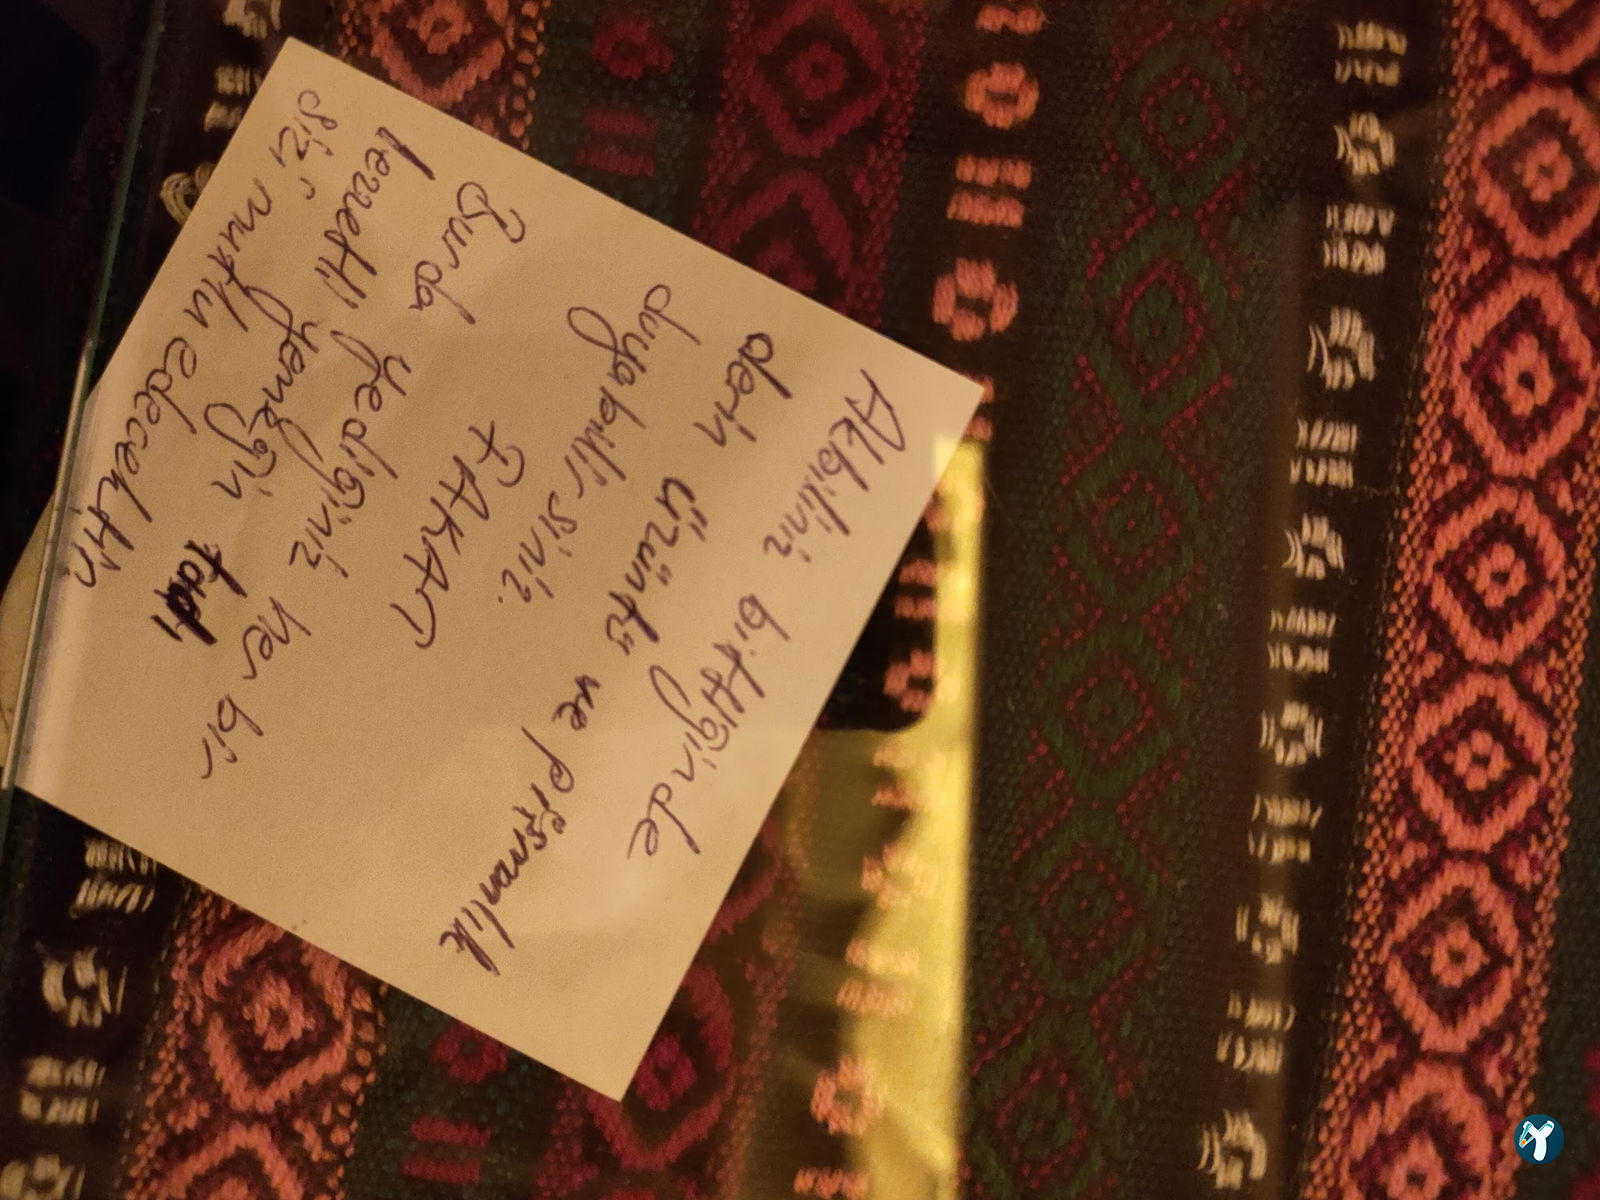 Akbiliniz bittiğinde
derin üzüntü ve pişmanlık
duyabilirsiniz.
FAKAT
Burda yediğiniz her bir
lezzetli yemeğin tadı
sizi mutlu edecektir.